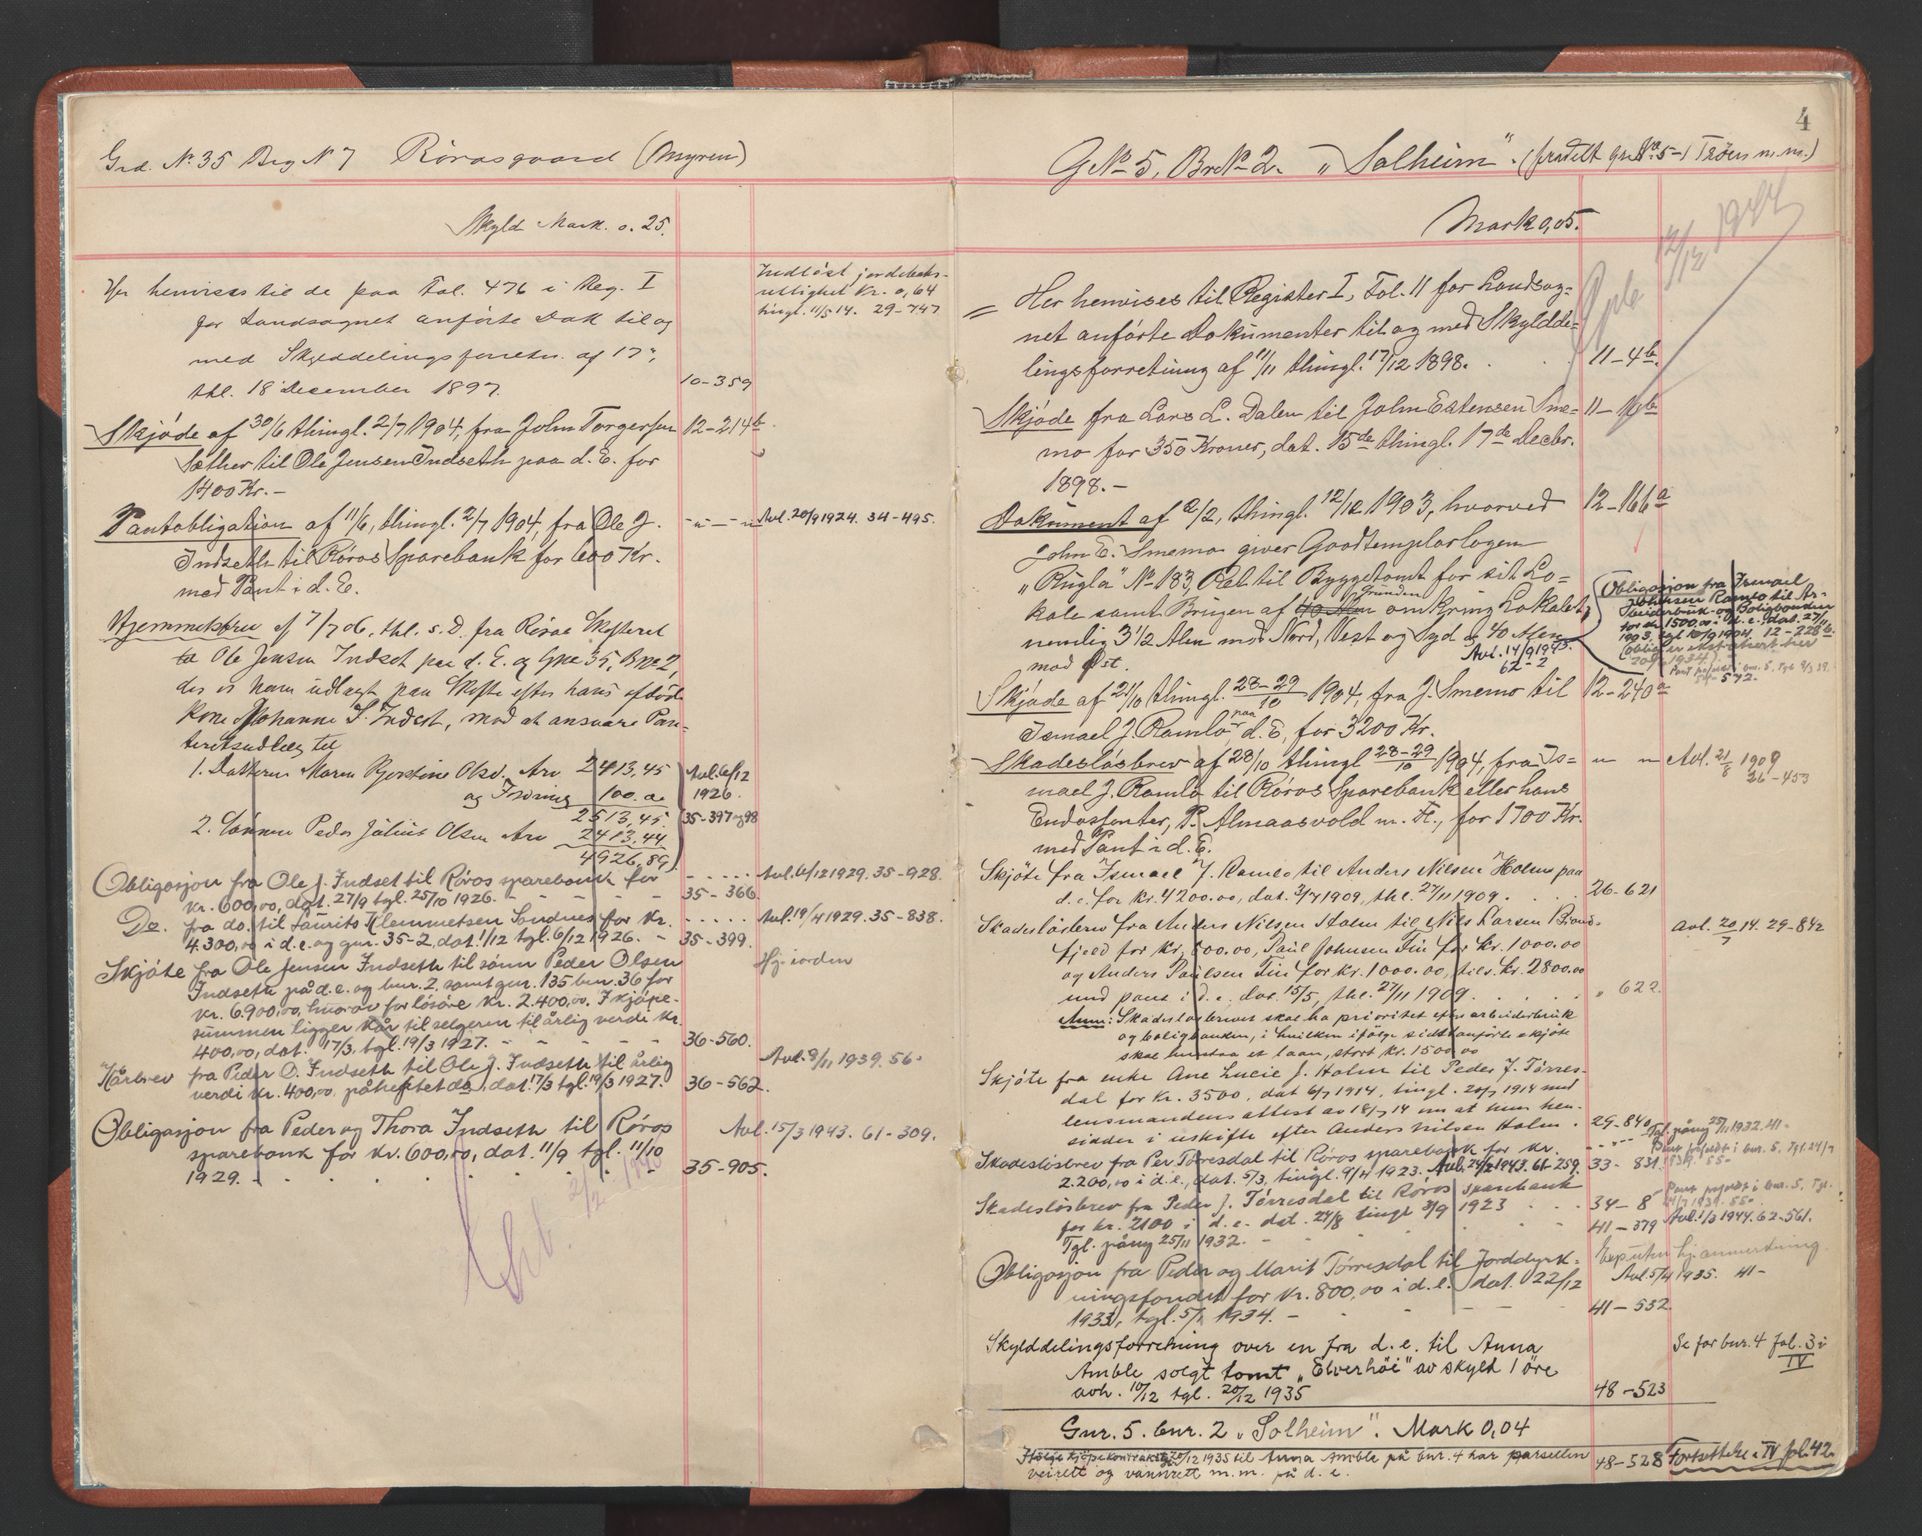 Grd. No 35 Brg N 7 Rørosgaard (Myren)
Skyld Mark. 0.25.
Her henvises til de paa Fol. 476 i Reg. I
for Landsognet anførte Dok til og
med Skylddelingsforretn. af 17',
thl. 18 December 1897.
10-359
Indløst jordeboks-
rettighet kr. 0,64
tingl. 11/5 14. 29-747
Skjøde af 30/6 thingl. 2/7 1904, fra John Torgersen
12-214b
Sæther til Ole Jensen Indseth paa d. E. for
1400 Kr.-
Pantobligation af 11/6, thingl. 2/7 1904, fra Ole J.
-"-"
Avl. 20/9 1924. 34-495.
Indseth til Røros Sparebank for 600 Kr.
med Pant i d. E.
Hjemmelsbrev af 7/7 06, thl. s. D. fra Røros Skifteret
to Ole Jensen Indset paa d. E. og Gno 35, Bno 2,
der er ham udlagt paa Skifte efter hans afdøde
Kone Johanne S. Indset, mod at ansvare Pan-
teretsudlæg til
1. Datteren Maren Kjerstine Olsd. Arv 2413,45
og Fordring 100.00
2513,45.
2. Sønnen Peder Julius Olsen Arv 2413,44
4926,89
Avl. 6/12
1926.
35-397 og 98
Obligasjon fra Ole J. Indset til Røros sparebank for
kr. 600,00, dat. 27/9 tgl. 25/10 1926.
35-366.
Avl. 6/12 1929. 35-928.
Do. fra do. til Laurits Klemmetsen Sundnes for kr.
4.300,00 i d.e. og gnr. 35-2, dat. 1/12 tgl. 6/12 1926.
35-399.
Avl. 19/4 1929. 35-838.
Skjøte fra Ole Jensen Indseth til sønn Peder Olsen
Indseth på d.e. og bnr. 2. samt gnr. 135 bnr. 36 for
kr. 6.900,00, hvorav for løsøre kr. 2.400,00. I kjøpe-
summen ligger kår til selgeren til årlig verdi kr.
400,00, dat. 17/3, tgl. 19/3 1927.
36-560.
Hj. i orden
Kårbrev fra Peder O. Indseth til Ole J. Indseth til årlig
verdi kr. 400,00, påheftet do, dat. 17/3 tgl. 19/3 1927.
36-562.
Avl. 9/11 1939. 56-
Obligasjon fra Peder og Thora Indseth til Røros
sparebank for kr. 600,00, dat. 11/9 tgl. 11/10
1929.
35-905.
Avl. 15/3 1943. 61-309.
4
G No 5, Br No 2. "Solheim". (fradelt gr. No. 5-1 Trøen m.m.)
Mark 0,05.
12/12 1944
Her henvises til Register I, Fol. 11 for Landsog-
net anførte Dokumenter til og med Skyldde-
lingsforretning af 11/11 thingl. 17/12 1898.
11-4b.
Skjøde fra Lars L. Dalen til John Estensen Sme-
mo for 350 Kroner, dat. 15de thingl. 17de Decbr.
1898.-
Dokument af 2/2, thingl. 12/12 1903, hvorved
12-166a
John E. Smemo giver Goodtemplarlogen
"Rugla" No 183, Ret til Byggetomt for sit Lo-
kale samt Brugen af Grunden omkring Lokalet,
nemlig 3 1/2 Alen mod Nord, Vest og Syd og 40 Alen
mod Øst.
Avl. 14/9 1943.
62-2
Obligasjon fra Ismael
Johnsen Ramlo til Ar-
beiderbruk- og Boligbanken
for kr. 1500.00 i d.e. dat. 27/11
1903, tgl. 10/9 1904. 12-228b.
Skjøde af 21/10 thingl. 28-29/10 1904, fra J. Smemo til
12-240a
Ismael J. Ramlo paa d. E, for 3200 Kr.
Skadesløsbrev af 28/10 thingl 28-29/10 1904, fra Is-
" "
Avl. 21/8 1909
26-453
mael J. Ramlo til Røros Sparebank eller hans
Endossenter, P. Almaasvold m. Fl., for 1700 Kr.
med Pant i d. E.
Skjøte fra Ismael J. Ramlo til Anders Nilsen Holm paa
d. e. for kr. 4200.00, dat. 3/7 1909, thl. 27/11 1909.
26-621
Skadesløsbrev fra Anders Nilsen Holm til Nils Larsen Brænd-
fjeld for kr. 800.00, Paul Johnsen Fin for kr. 1000.00
og Anders Paulsen Fin for kr. 1000.00, tils. kr. 2800.00
med pant i d. e. dat. 15/5, thl. 27/11 1909.
" 622.
Avl. 20/7 14. 29-842
Anm: Skadesløsbrevet skal ha prioritet efter arbeiderbruk
og boligbanken, i hvilken ifølge sidstanførte skjøte
skal henstaa et laan, stort kr. 1500.00
Skjøte fra enke Ane Lucie J. Holm til Peder J. Tørres-
dal for kr. 3500, dat 6/7 1914, tingl. 20/7 1914 med
lensmandens attest av 18/7 14 om at hun hen-
sidder i uskifte efter Anders Nilsen Holm.
29-840
Skadesløsbrev fra Per Tørresdal til Røros sparebank for kr.
2.200,00 i d.e., dat. 5/3, tingl. 9/11 1923. Avl. 24/2 1943. 61-259.
33-831
Tgl. påny 25/11 1932. 41-
Skadesløsbrev fra Peder J. Tørresdal til Røros sparebank
for kr. 2100 i d. e. dat. 24/8 tingl 3/9 1923
34-8
Tgl. påny 25/11 1932.
41-379
Avl. 1/3 1944. 62-561.
Obligasjon fra Peder og Marit Tørresdal til Jorddyrk-
ningsfondet for kr. 800,00 i d.e. dat. 22/12
1933, tgl. 5/1 1934.
41-532.
Exp. uten hj.anmerkning.
Avl. 5/4 1935. 41-
Skylddelingsforretning over en fra d. e. til Anna
Amble solgt tomt "Elverhøi" av skyld 1 øre
avh. 10/12 tgl. 20/12 1935
48-523
Se for bnr. 4 fol. 3 i
IV
Gnr. 5. bnr. 2 "Solheim". Mark 0,04
Ifølge kjøpekontrakt tgl. 20/12 1935 til Anna Amble på bnr. 4 har parsellen
veirett og vannrett m.m. på d. e.
48-528
Fortsettelse i IV fol. 42.